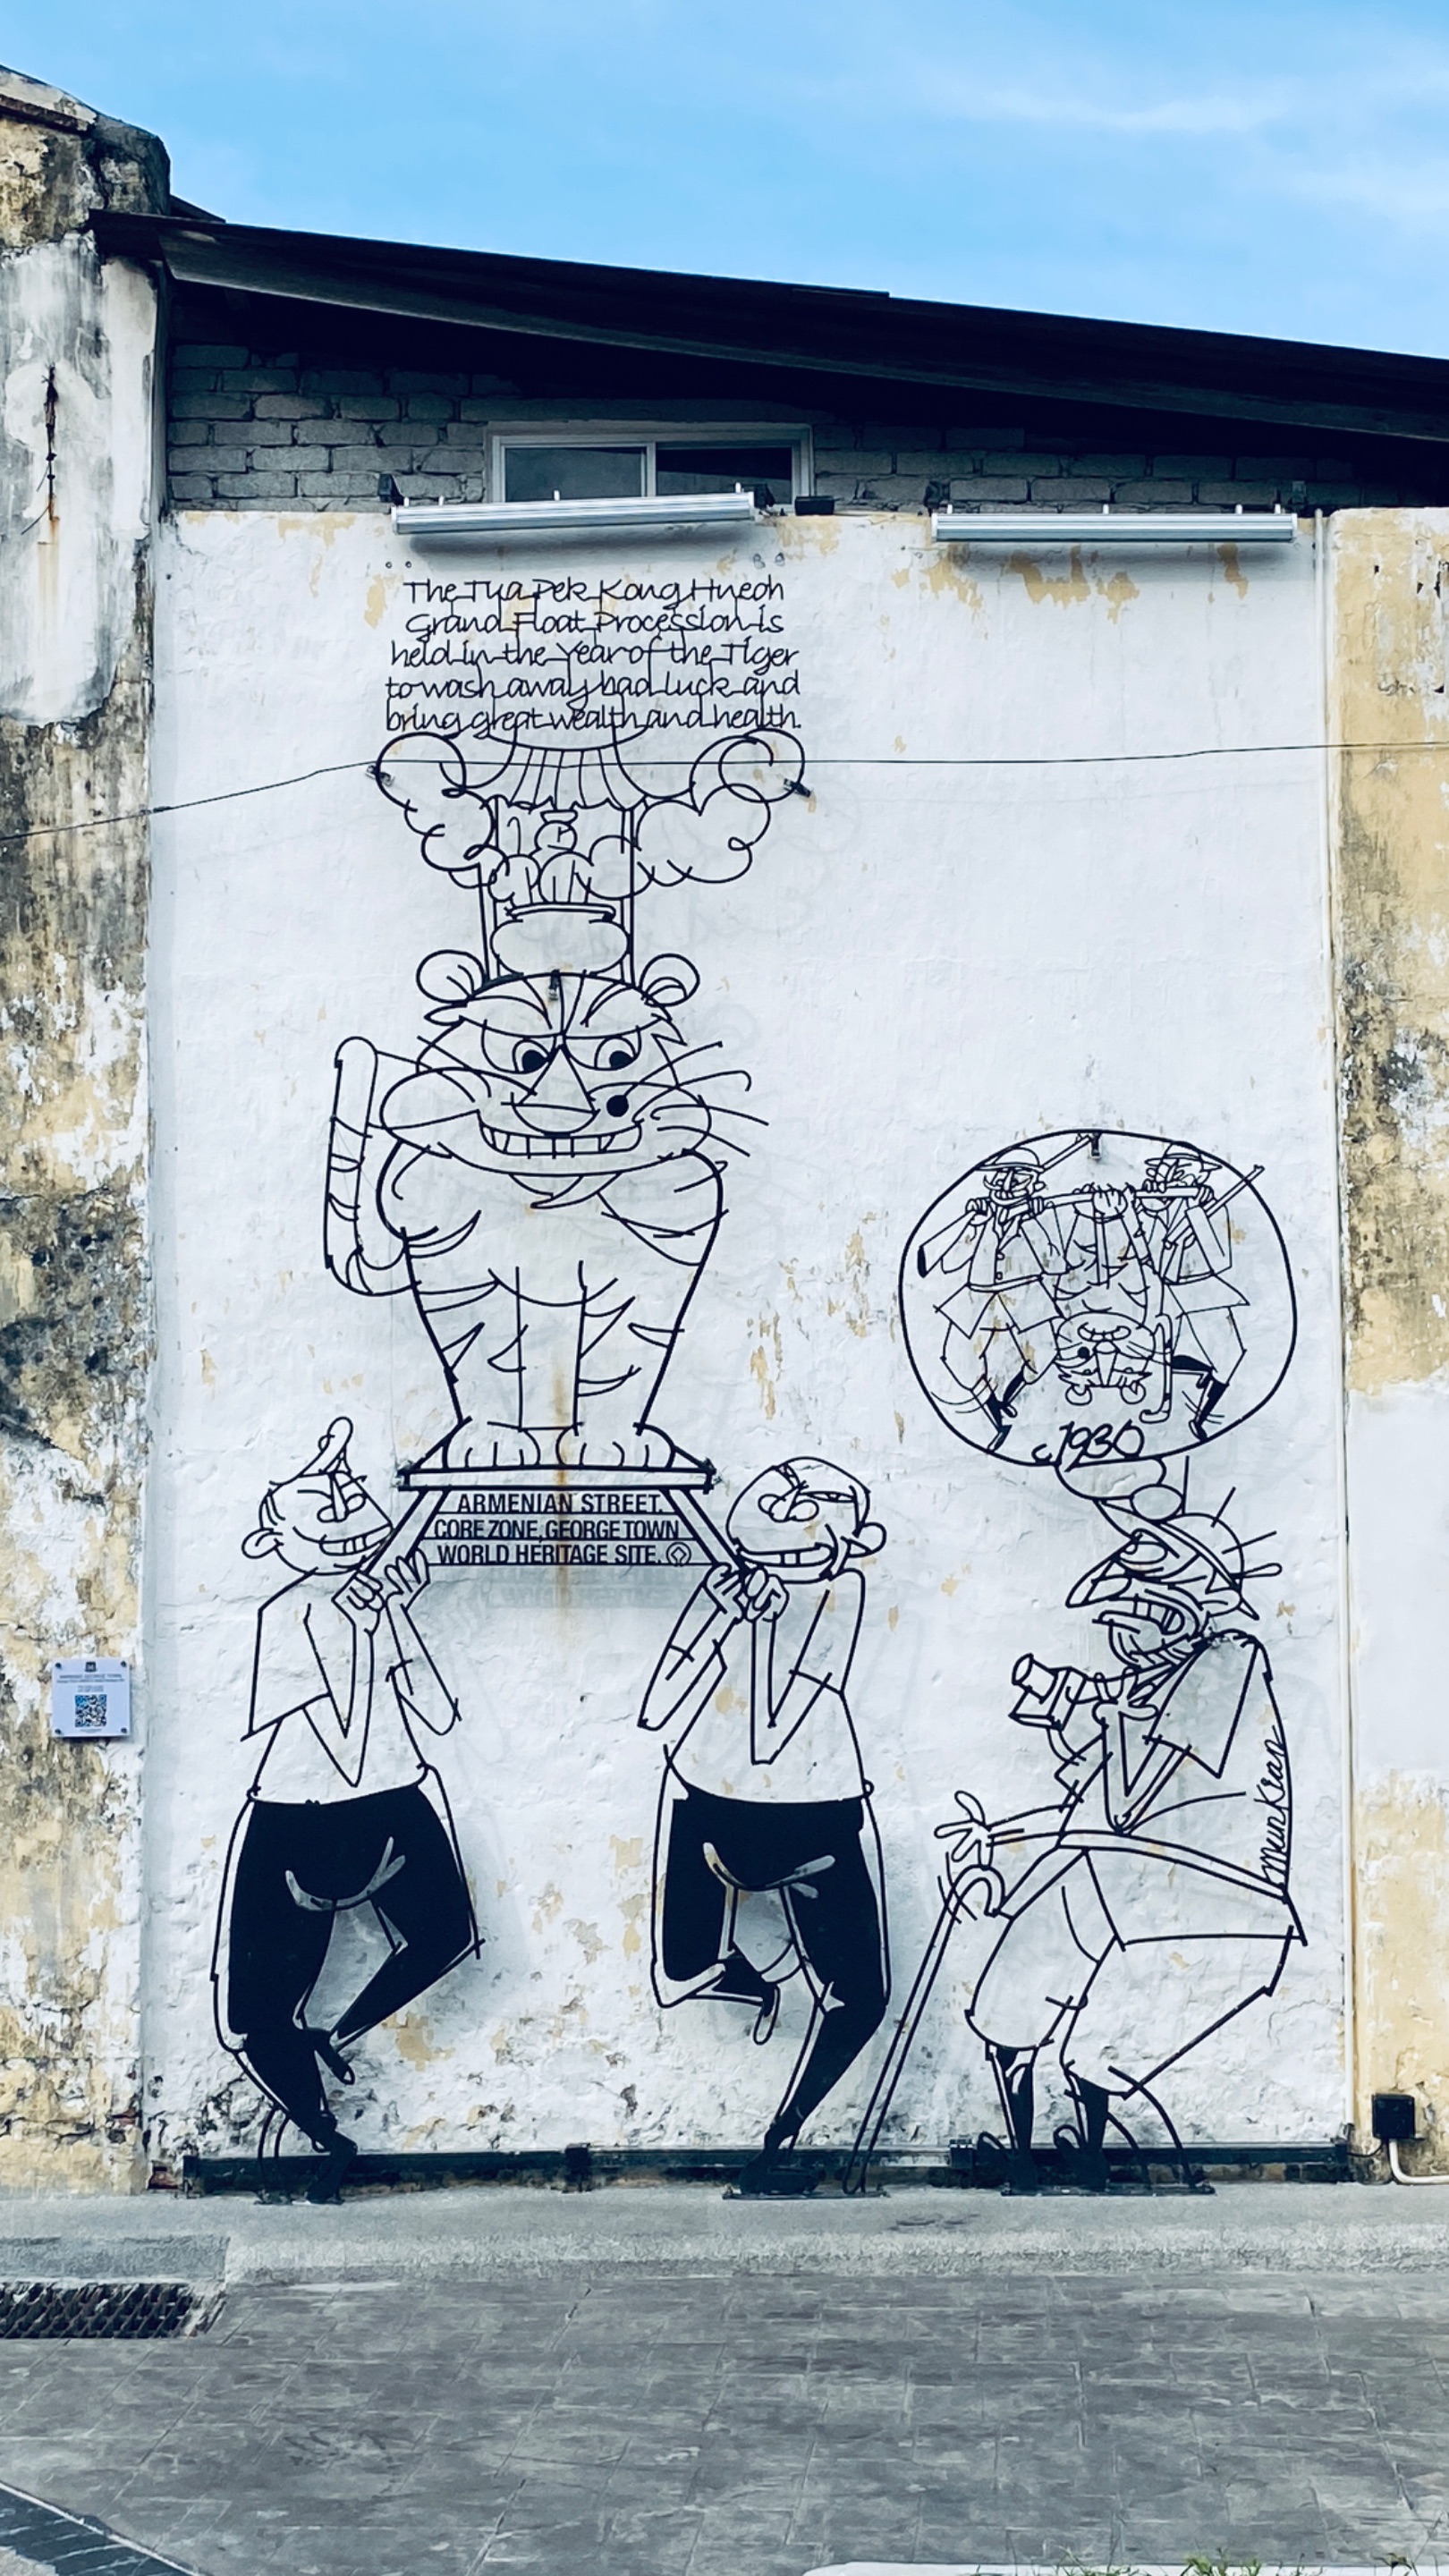 The Tua Pek Kong Hneoh
Grand Float Procession is
held in the Year of the Tiger
to wash away bad luck and
bring great wealth and health.
ARMENIAN STREET,
CORE ZONE, GEORGE TOWN
WORLD HERITAGE SITE.
c.1930
munkian